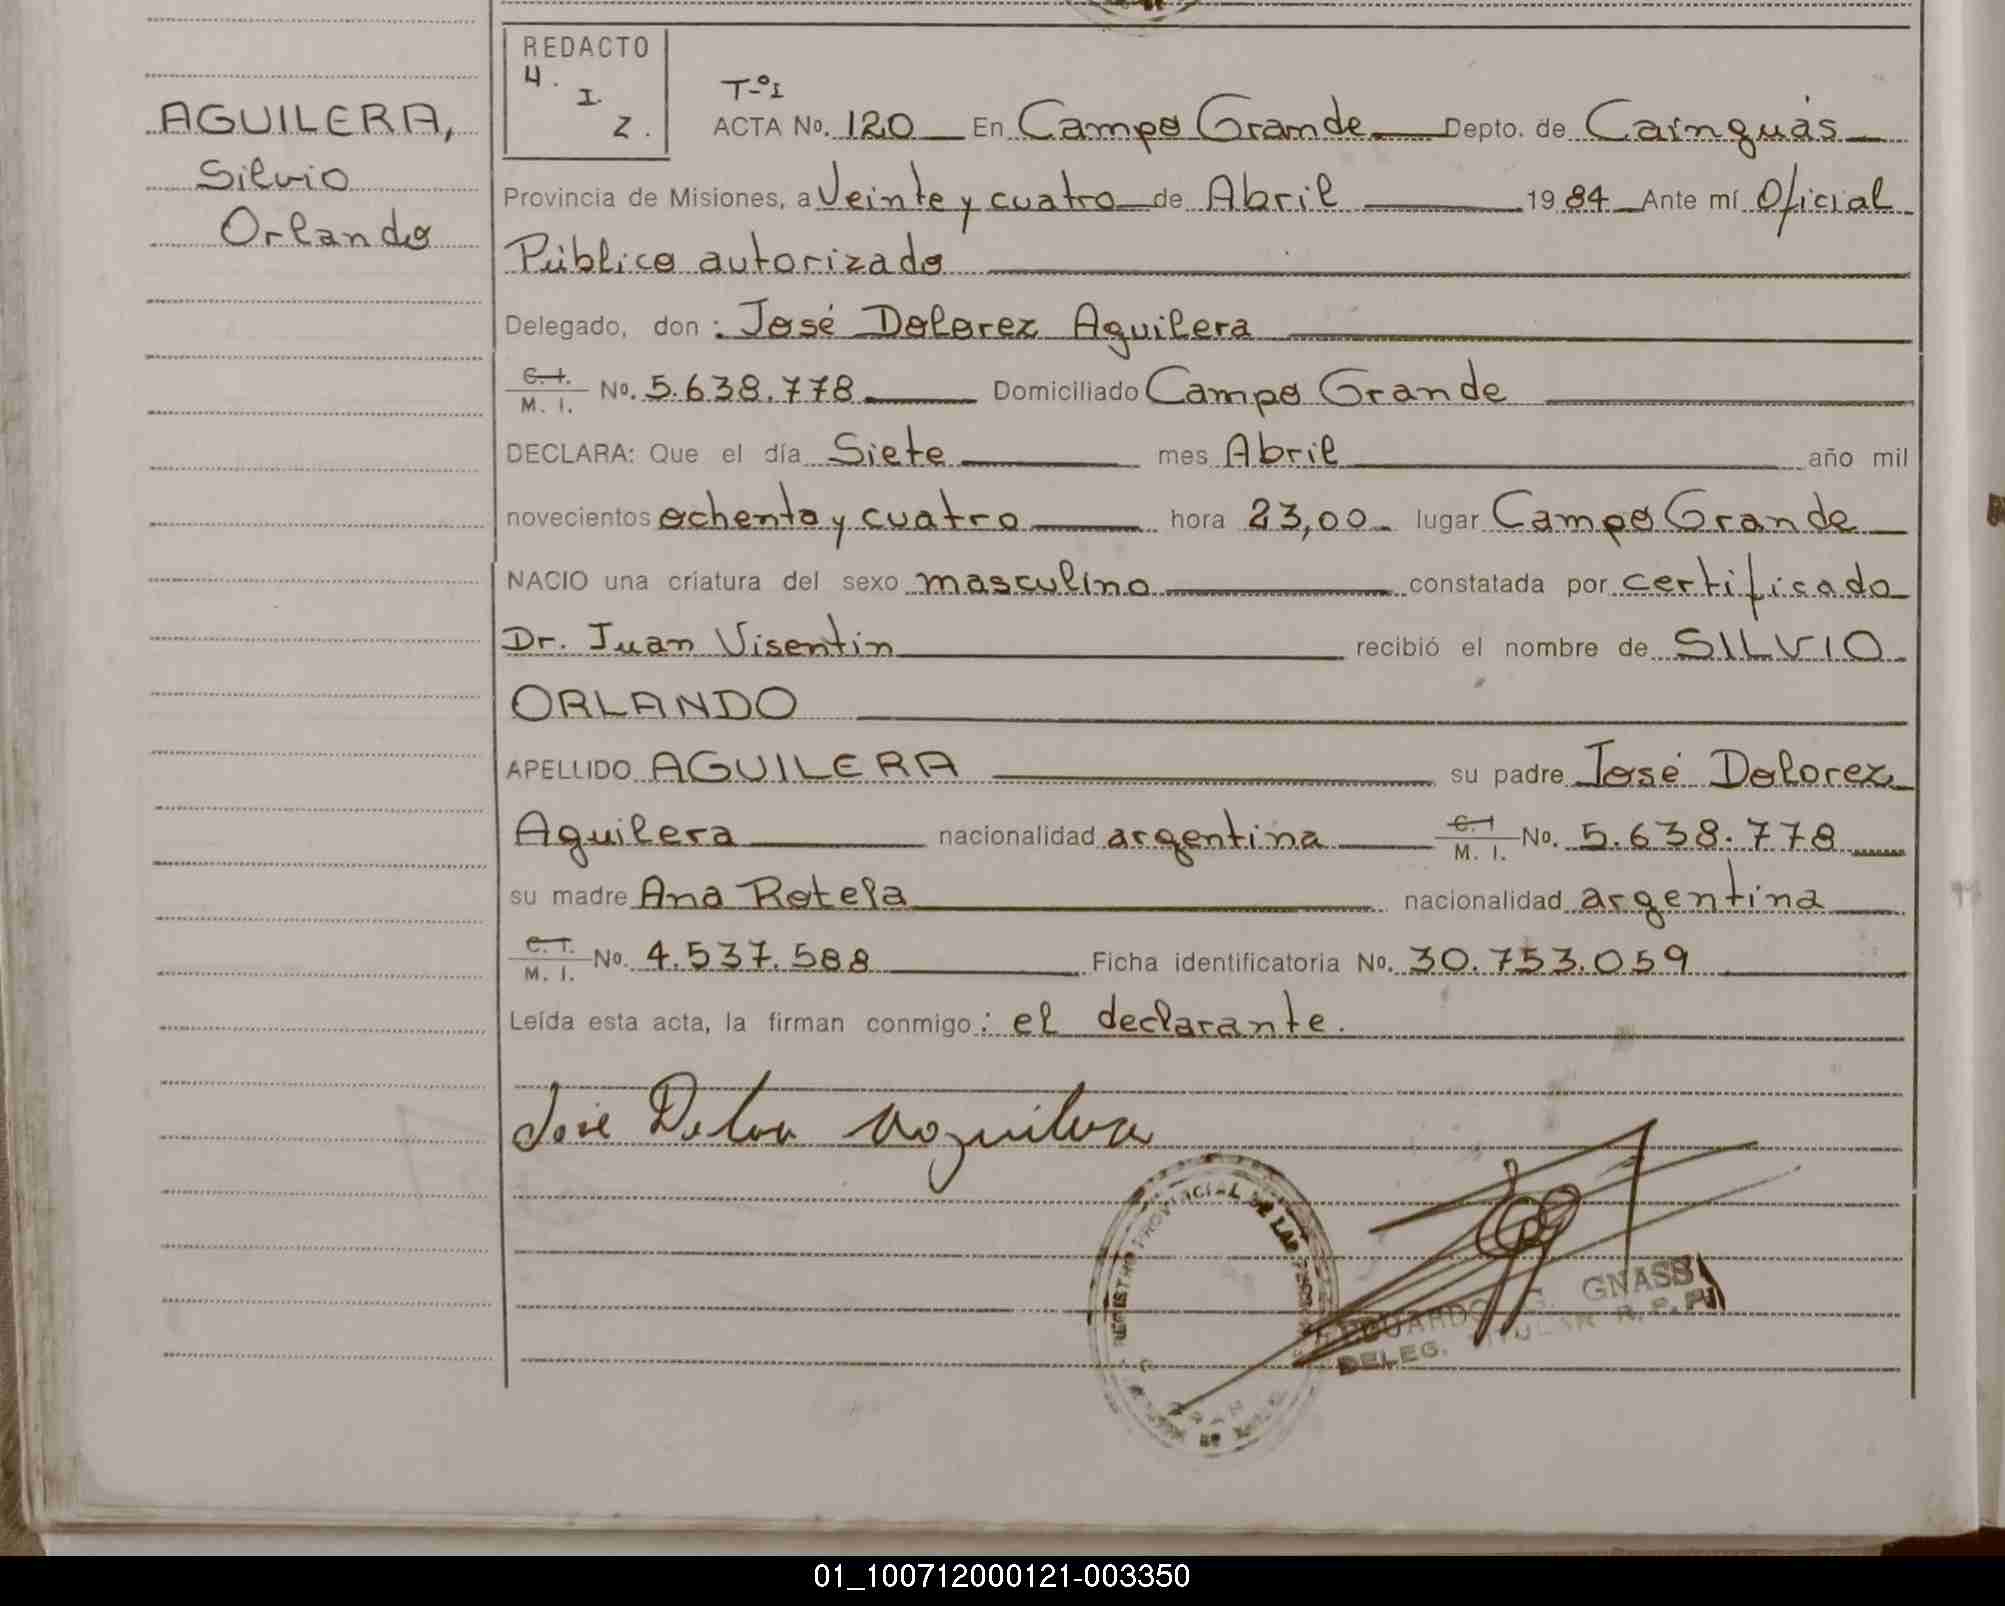 AGUILERA,
Silvio
Orlando
REDACTO
4.
I.
Z.
T-º I
ACTA No. 120 En Campo Grande Depto. de Cainguás
Provincia de Misiones, a Veinte y cuatro de Abril 1984 Ante mí Oficial
Público autorizado
Delegado, don: José Dolorez Aguilera
C. I. M. I. No. 5.638.778 Domiciliado Campo Grande
DECLARA: Que el día Siete mes Abril año mil
novecientos ochenta y cuatro hora 23,00 lugar Campo Grande
NACIO una criatura del sexo masculino constatada por certificado
Dr. Juan Visentin recibió el nombre de SILVIO
ORLANDO
APELLIDO AGUILERA su padre José Dolorez
Aguilera nacionalidad argentina C. I M. I. No. 5.638.778
su madre Ana Rotela nacionalidad argentina
C. I. M. I. No. 4.537.588 Ficha identificatoria No. 30.753.059
Leída esta acta, la firman conmigo: el declarante.
José Aguilera
REGISTRO PROVINCIAL DE LAS
EDUARDO GNASS
DELEG. TITULAR R. P. P.
01_100712000121-003350